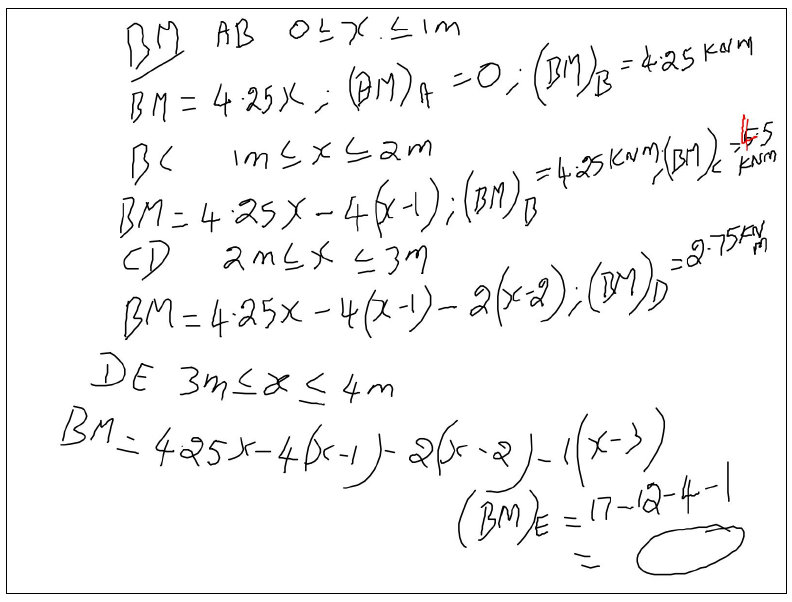 BM AB 0≤x.≤1m
BM = 4.25x ; (BM)A = 0 ; (BM)B = 4.25 KNm
BC 1m≤x≤2m
BM = 4.25x – 4(x-1) ; (BM)B = 4.25 KNm ; (BM)C = 4.5 KNm
CD 2m≤x≤3m
BM = 4.25x – 4(x-1) – 2(x-2) ; (BM)D = 2.75 KNm
DE 3m≤x≤4m
BM = 4.25x – 4(x-1) – 2(x-2) – 1(x-3)
(BM)E = 17-12-4-1
= 0